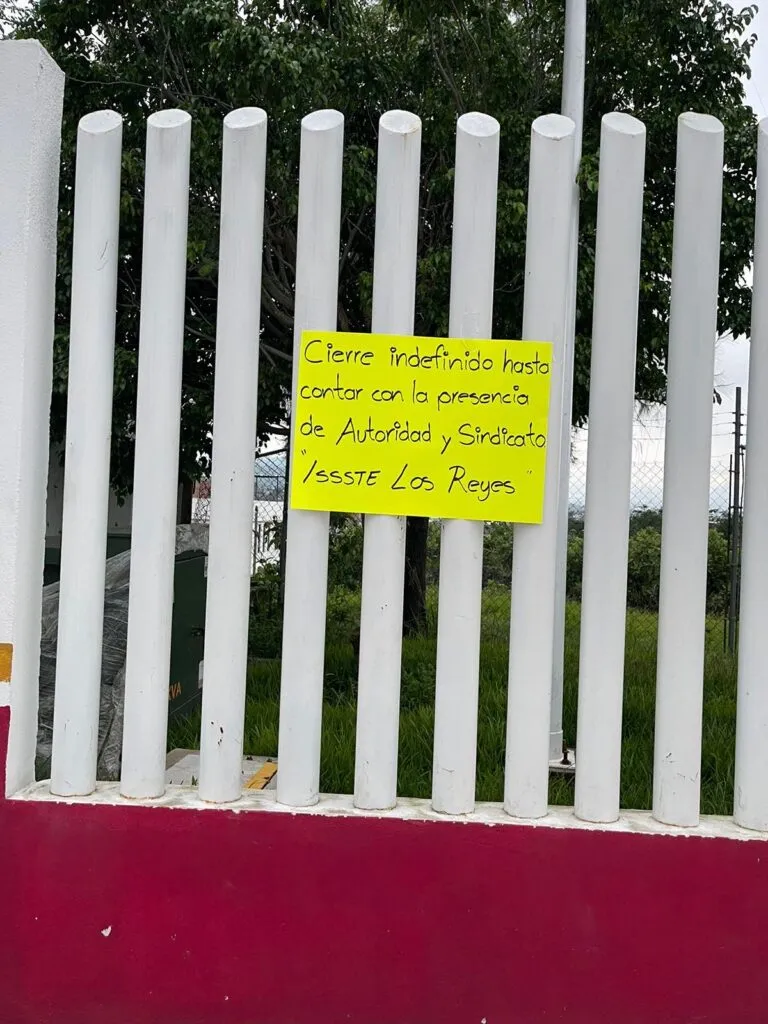 Cierre indefinido hasta
contar con la presencia
de Autoridad y Sindicato.
"ISSSTE Los Reyes"